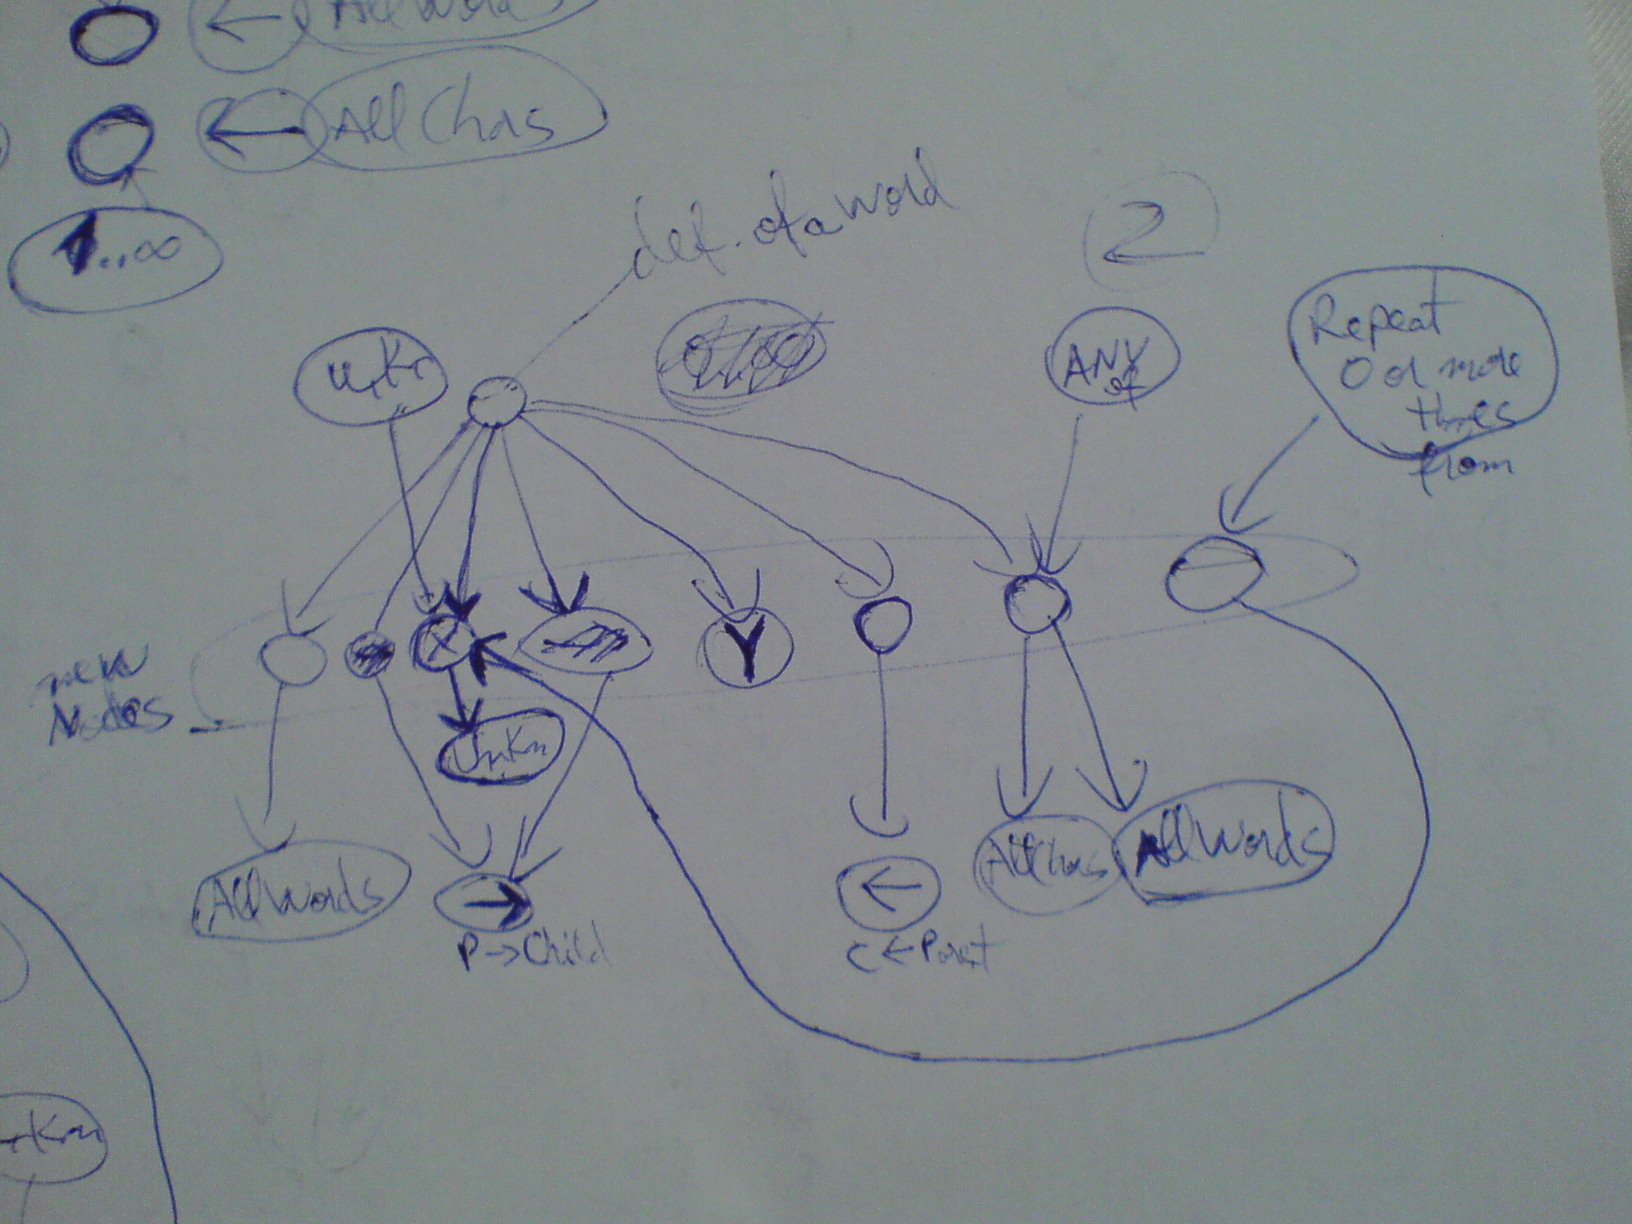 All Word
All Chrs
1..∞
def. of a word
2
UnKn
ANY
of
Repeat
0 or more
times
from
X
Y
new
Nodes
UnKn
AllWords
P→Child
C←Parent
AllChrs
AllWords